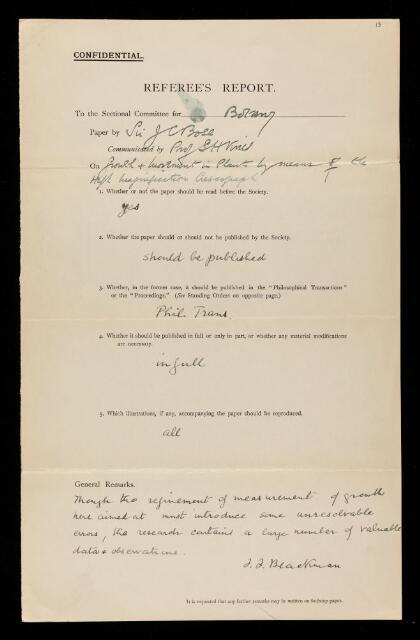 13
CONFIDENTIAL.
REFEREE'S REPORT.
To the Sectional Committee for Botany
Paper by Sir J C Bose
Communicated by Prof S H Vines
On Growth & Movement in Plants by means of the
High Magnification Crescograph
1. Whether or not the paper should be read before the Society.
yes
2. Whether the paper should or should not be published by the Society.
should be published
3. Whether, in the former case, it should be published in the "Philosophical Transactions"
or the "Proceedings." (See Standing Orders on opposite page.)
Phil. Trans.
4. Whether it should be published in full or only in part, or whether any material modifications
are necessary.
in full
5. Which illustrations, if any, accompanying the paper should be reproduced.
all
General Remarks.
Though the refinement of measurement of growth
here aimed at must introduce some unresolvable
errors, the research contains a large number of valuable
data & observations.
F. F. Blackman
It is requested that any further remarks may be written on foolscap paper.